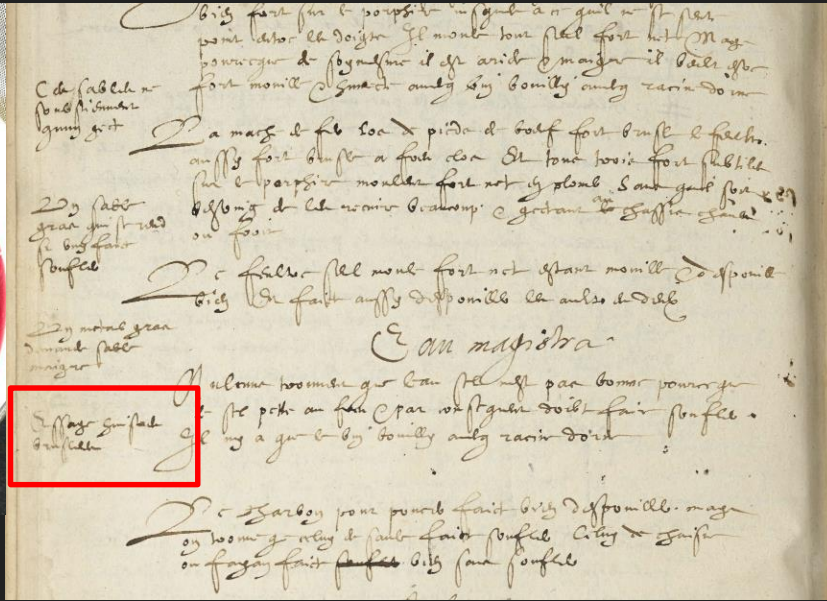 bien fort sur le porphire jusques a ce quil ne se sente
point entre les doigts Il moule tout seul fort net Mays
pourceque de soymesme il est aride & maigre il veult estre
fort mouille & humecte avecq vin bouilly avecq racine dorme
Ces sables ne
soubstiennent
quun gect
La mach de fer los de pieds de boeuf fort brusle le feultre
aussy fort brusle a foeu clos Et tous trois fort subtilies
sur le porphire moulent fort net en plomb. Sans quil soit
besoing de les recuire beaucoup & gectant au chassis chauld
ou froit
Un sable
gras qui se
faict
soufler
Le feultre seul moule fort net estant mouille & despouille
bien Et faict aussy despouiller les aultres
Un metal gras
demande sable
maigre
Eau magistra
Aulcuns trouvent que leau sel nest pas bonne pourceque
le sel pette au foeu & par consequent doibt faire soufler.
Il ny a que le vin bouilly avecq racine dorme
Essaye huistres
bruslees
Le charbon pour poncis faict bien despouiller. mays
on trouve que celuy de saule faict soufler Celuy de chaisne
ou fayan faict soufler bien sans soufler